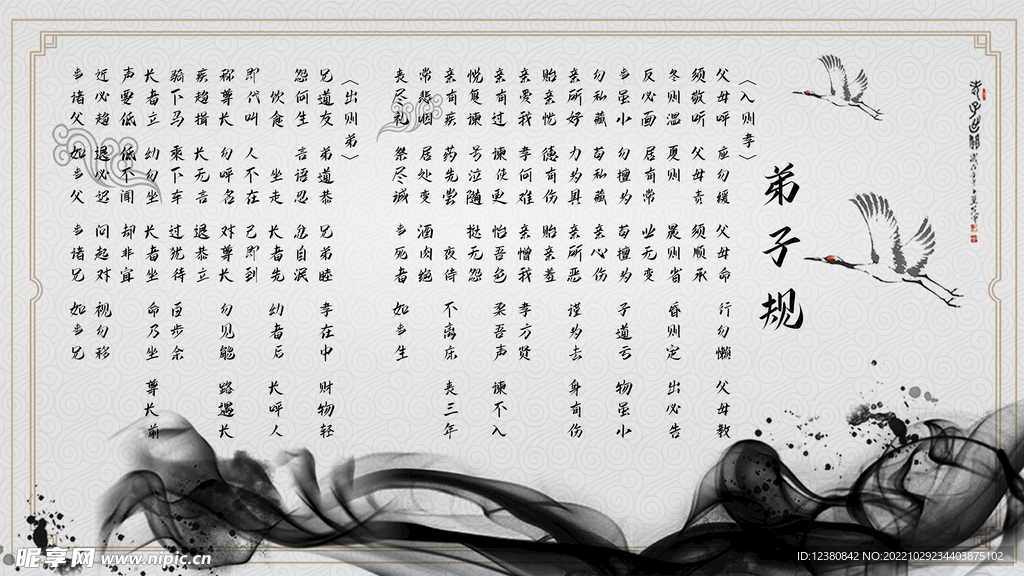 弟子规
〈入则孝〉
父母呼 应勿缓 父母命 行勿懒 父母教
须敬听 父母责 须顺承
冬则温 夏则 晨则省 昏则定 出必告
反必面 居有常 业无变
事虽小 勿擅为 苟擅为 子道亏 物虽小
勿私藏 苟私藏 亲心伤
亲所好 力为具 亲所恶 谨为去 身有伤
贻亲忧 德有伤 贻亲羞
亲爱我 孝何难 亲憎我 孝方贤
亲有过 谏使更 怡吾色 柔吾声 谏不入
悦复谏 号泣随 挞无怨
亲有疾 药先尝 夜侍 不离床 丧三年
常悲咽 居处变 酒肉绝
丧尽礼 祭尽诚 事死者 如事生
〈出则弟〉
兄道友 弟道恭 兄弟睦 孝在中 财物轻
怨何生 言语忍 忿自泯
饮食 坐走 长者先 幼者后 长呼人
即代叫 人不在 己即到
称尊长 勿呼名 对尊长 勿见能 路遇长
疾趋揖 长无言 退恭立
骑下马 乘下车 过犹待 百步余
长者立 幼勿坐 长者坐 命乃坐 尊长前
声要低 低不闻 却非宜
近必趋 退必迟 问起对 视勿移
事诸父 如事父 事诸兄 如事兄
昵享网 www.nipic.cn
ID:12380842 NO:20221029234403875102